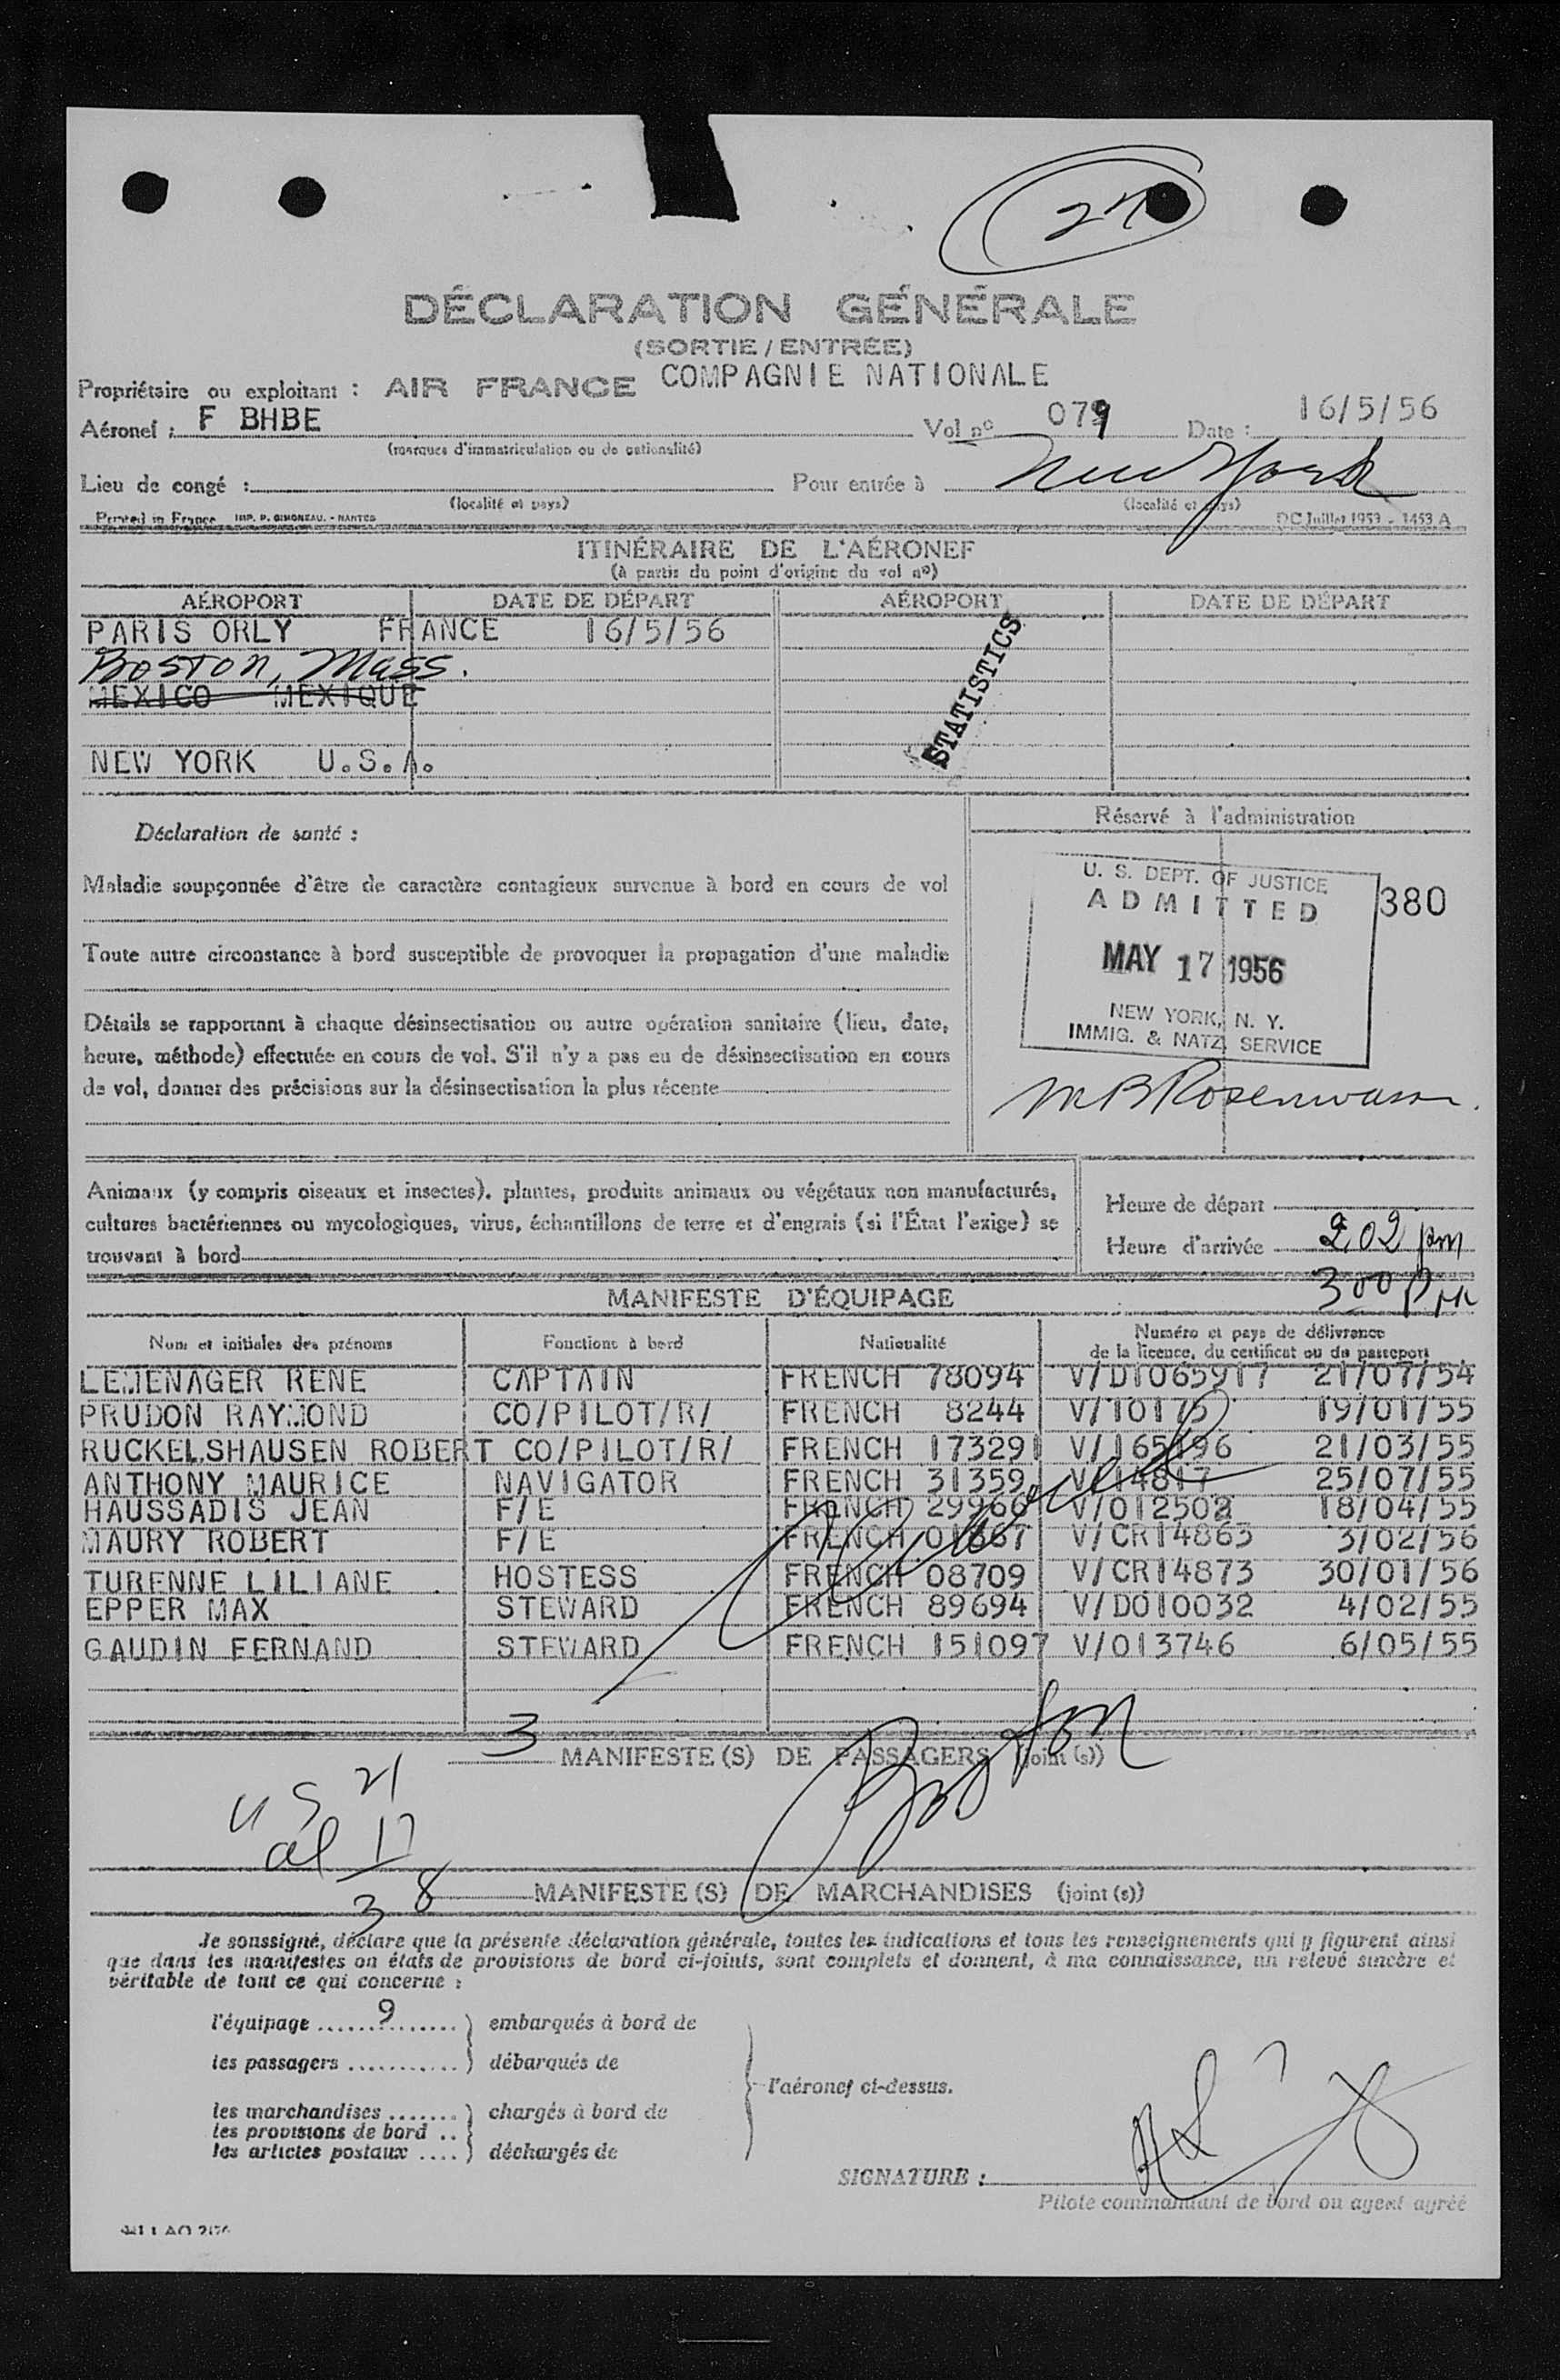 27
DÉCLARATION GÉNÉRALE
(SORTIE / ENTRÉE)
Propriétaire ou exploitant : AIR FRANCE COMPAGNIE NATIONALE
Aéronef : F BHBE Vol nº 079 Date : 16/5/56
(marques d'immatriculation ou de nationalité)
Lieu de congé : Pour entrée à New York
(localité et pays) (localité et pays)
Printed in France IMP. P. GIMONEAU. - NANTES DC Juillet 1953 - 1453 A
ITINÉRAIRE DE L'AÉRONEF
(à partir du point d'origine du vol nº)
AÉROPORT DATE DE DÉPART AÉROPORT DATE DE DÉPART
PARIS ORLY FRANCE 16/5/56
Boston, Mass.
MEXICO MEXIQUE
STATISTICS
NEW YORK U.S.A.
Déclaration de santé :
Maladie soupçonnée d'être de caractère contagieux survenue à bord en cours de vol
Toute autre circonstance à bord susceptible de provoquer la propagation d'une maladie
Détails se rapportant à chaque désinsectisation ou autre opération sanitaire (lieu, date,
heure, méthode) effectuée en cours de vol. S'il n'y a pas eu de désinsectisation en cours
de vol, donner des précisions sur la désinsectisation la plus récente
Réservé à l'administration
U. S. DEPT. OF JUSTICE
ADMITTED 380
MAY 17 1956
NEW YORK, N. Y.
IMMIG. & NATZ SERVICE
Animaux (y compris oiseaux et insectes), plantes, produits animaux ou végétaux non manufacturés,
cultures bactériennes ou mycologiques, virus, échantillons de terre et d'engrais (si l'État l'exige) se
trouvant à bord
Heure de départ
Heure d'arrivée 2 02 pm
3 00 pm
MANIFESTE D'ÉQUIPAGE
Nom et initiales des prénoms Fonctions à bord Nationalité Numéro et pays de délivrance
de la licence, du certificat ou du passeport
LEMENAGER RENE CAPTAIN FRENCH 78094 V/D1065917 21/07/54
PRUDON RAYMOND CO/PILOT/R/ FRENCH 8244 V/10175 19/01/55
RUCKELSHAUSEN ROBERT CO/PILOT/R/ FRENCH 173291 V/165196 21/03/55
ANTHONY MAURICE NAVIGATOR FRENCH 31359 V/14817 25/07/55
HAUSSADIS JEAN F/E FRENCH 29966 V/012502 18/04/55
MAURY ROBERT F/E FRENCH V/CR14863 3/02/56
TURENNE LILIANE HOSTESS FRENCH 08709 V/CR14873 30/01/56
EPPER MAX STEWARD FRENCH 89694 V/D010032 4/02/55
GAUDIN FERNAND STEWARD FRENCH 151097 V/013746 6/05/55
3 MANIFESTE(S) DE PASSAGERS (joint (s))
Boston
US 21
al 17
38
MANIFESTE(S) DE MARCHANDISES (joint (s))
Je soussigné, déclare que la présente déclaration générale, toutes les indications et tous les renseignements qui y figurent ainsi
que dans les manifestes ou états de provisions de bord ci-joints, sont complets et donnent, à ma connaissance, un relevé sincère et
véritable de tout ce qui concerne :
l'équipage 9 embarqués à bord de
les passagers débarqués de
l'aéronef ci-dessus.
les marchandises chargés à bord de
les provisions de bord
les articles postaux déchargés de
SIGNATURE :
Pilote commandant de bord ou agent agréé